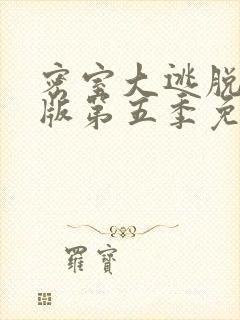 密室大逃脱
版第五季免
羅寶